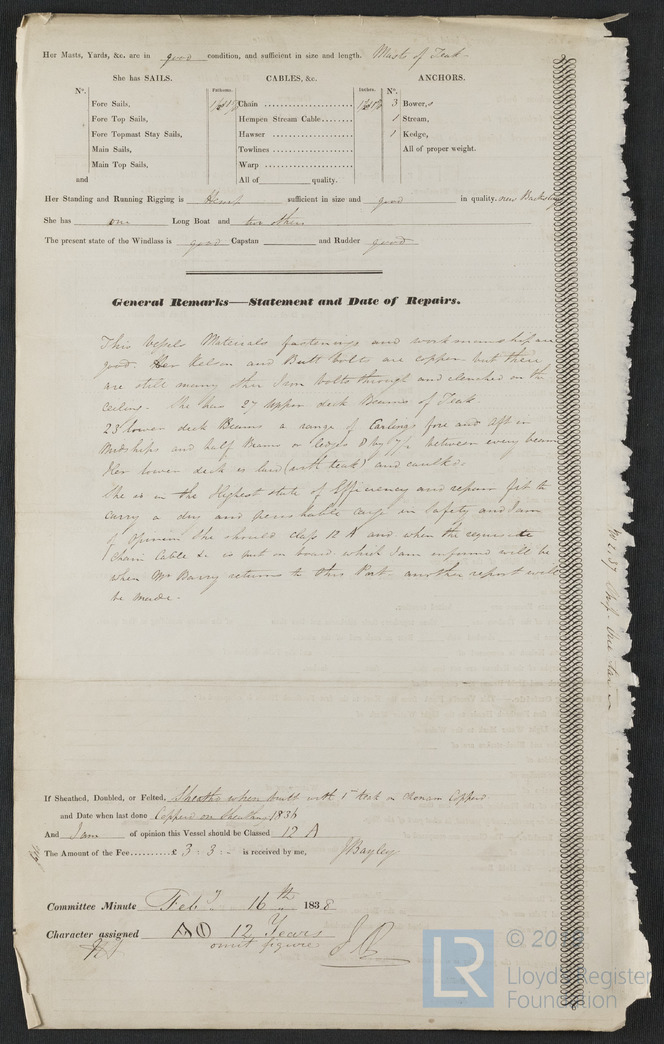 Her Masts, Yards, &c. are in good condition, and sufficient in size and length. Masts of Teak
She has SAILS. CABLES, &c. ANCHORS.
Nº. Fathoms. Inches. Nº.
Fore Sails, Chain 3 Bower,s
Fore Top Sails, Hempen Stream Cable 1 Stream,
Fore Topmast Stay Sails, Hawser 1 Kedge,
Main Sails, Towlines All of proper weight.
Main Top Sails, Warp
and All of quality.
Her Standing and Running Rigging is Hemp sufficient in size and good in quality.
She has one Long Boat and two others
The present state of the Windlass is good Capstan and Rudder good
General Remarks—Statement and Date of Repairs.
This Vessels Materials fastenings and workmanship are
good. Her Kelson and Butt bolts are copper but there
are still many other Iron bolts through and clenched on the
Ceiling. She has 27 Upper deck Beams of Teak
23 lower deck Beams a range of Carlings fore and aft in
Midships and half Beams or Ledges 8 by 7½ between every beam
Her lower deck is laid (with teak) and caulked.
She is in the Highest state of Efficiency and repair fit to
carry a dry and perishable cargo in Safety and I am
of Opinion She should class 12 A and when the requisite
Chain Cable &c is put on board which I am informed will be
when Mr Barry returns to this Port another report will
be made.
If Sheathed, Doubled, or Felted, Sheathed when built with 1 in teak on Chonam Copperd
and Date when last done Copperd on Sheathing 1836
And I am of opinion this Vessel should be Classed 12 A
The Amount of the Fee £ 3 : 3 : - is received by me, J Bayley
Committee Minute Feby 16th 1838
Character assigned 12 Years
omit figure
LR © 20
Lloyd's Register
Foundation